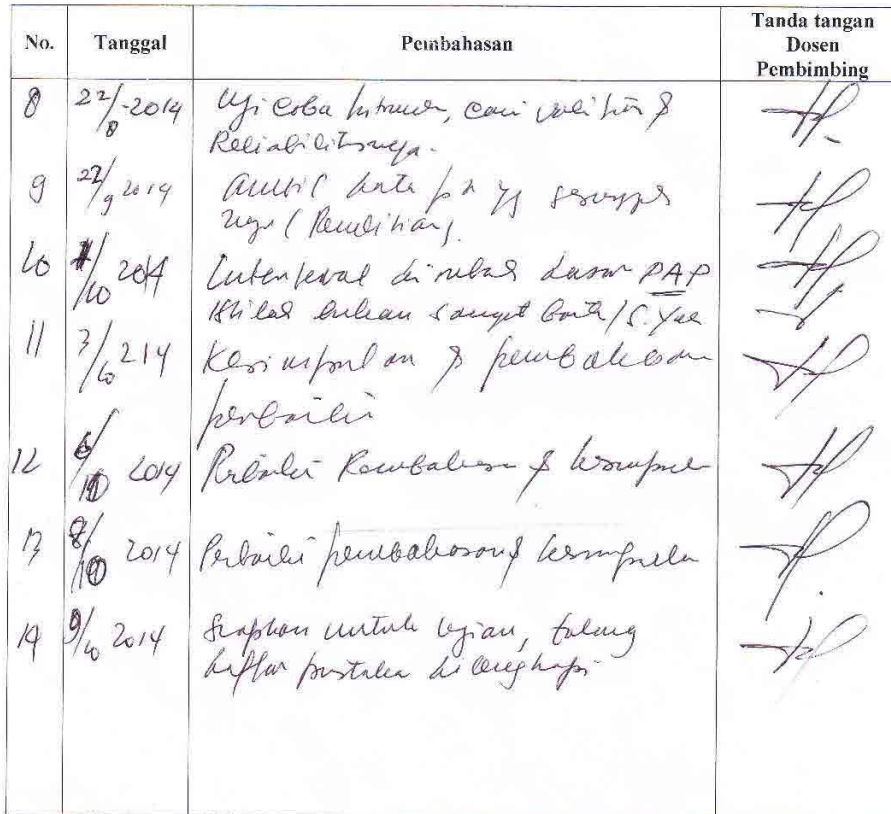 No. Tanggal Pembahasan Tanda tangan
Dosen
Pembimbing
8 22/8-2014 Uji coba Intrumen, cari validitas &
Reliabilitasnya.
9 22/9 2014 ambil data yg
(Penelitian)
10 1/10 2014 dirubah dasar PAP
Istilah bukan sangat baik/
11 3/10 214 Kesimpulan & pembahasan
perbaiki
12 6/10 2014 Perbaiki Pembahasan & kesimpulan
13 8/10 2014 Perbaiki pembahasan & kesimpulan
14 9/10 2014 Siapkan untuk ujian, tolong
daftar pustaka dilengkapi